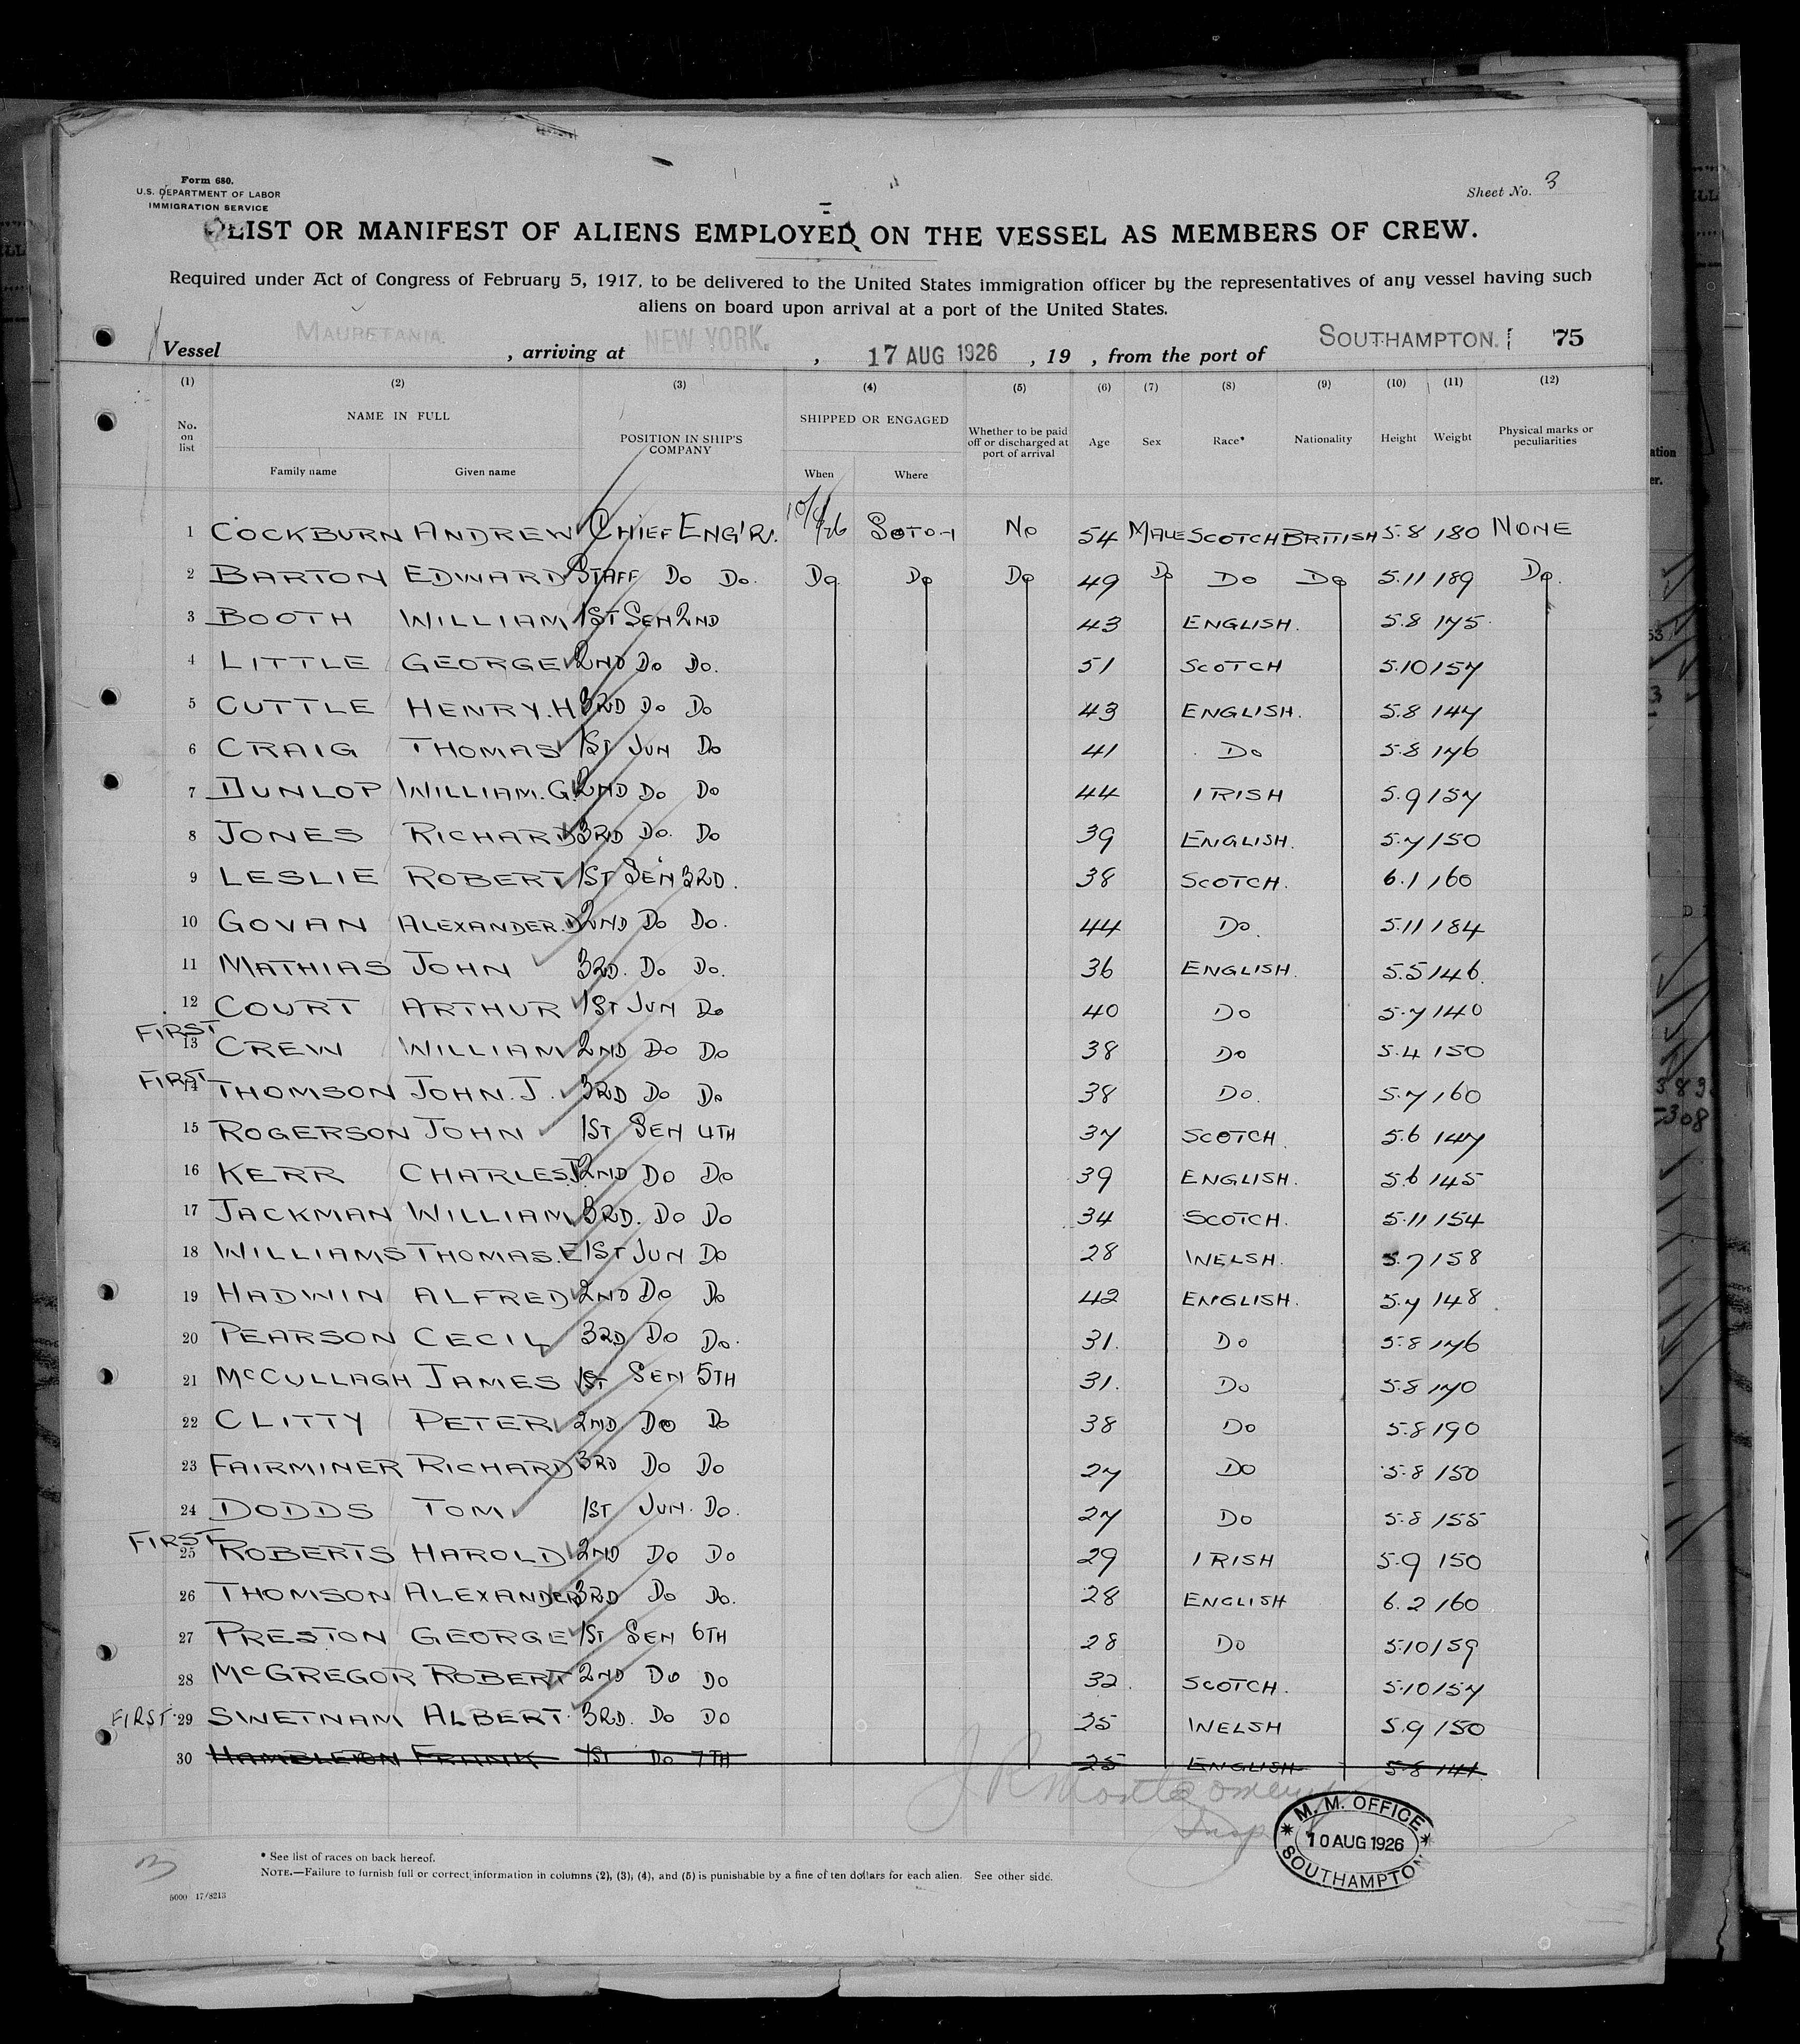 Form 680.
U.S. DEPARTMENT OF LABOR
IMMIGRATION SERVICE
Sheet No. 3
LIST OR MANIFEST OF ALIENS EMPLOYED ON THE VESSEL AS MEMBERS OF CREW.
Required under Act of Congress of February 5, 1917, to be delivered to the United States immigration officer by the representatives of any vessel having such
aliens on board upon arrival at a port of the United States.
Vessel MAURETANIA. , arriving at NEW YORK. , 17 AUG 1926 , 19 , from the port of SOUTHAMPTON. 75
(1) (2) (3) (4) (5) (6) (7) (8) (9) (10) (11) (12)
No. on list NAME IN FULL Family name Given name POSITION IN SHIP'S COMPANY SHIPPED OR ENGAGED When Where Whether to be paid off or discharged at port of arrival Age Sex Race* Nationality Height Weight Physical marks or peculiarities
1 COCKBURN ANDREW CHIEF ENG'R. 10/8/26 SOTON NO 54 MALE SCOTCH BRITISH 5.8 180 NONE
2 BARTON EDWARD STAFF DO DO. DO DO DO 49 DO DO DO 5.11 189 DO.
3 BOOTH WILLIAM 1ST SEN 2ND 43 ENGLISH. 5.8 175
4 LITTLE GEORGE 2ND DO DO. 51 SCOTCH 5.10 157
5 CUTTLE HENRY.H 3RD DO DO 43 ENGLISH. 5.8 147
6 CRAIG THOMAS 1ST JUN DO 41 DO 5.8 176
7 DUNLOP WILLIAM.G. 2ND DO DO 44 IRISH 5.9 157
8 JONES RICHARD 3RD DO. DO 39 ENGLISH. 5.7 150
9 LESLIE ROBERT 1ST SEN 3RD. 38 SCOTCH. 6.1 160
10 GOVAN ALEXANDER.D 2ND DO DO. 44 DO. 5.11 184
11 MATHIAS JOHN 3RD. DO DO. 36 ENGLISH. 5.5 146.
12 COURT ARTHUR 1ST JUN DO 40 DO 5.7 140
FIRST
13 CREW WILLIAM 2ND DO DO 38 DO 5.4 150
FIRST
14 THOMSON JOHN.J. 3RD DO DO 38 DO. 5.7 160
15 ROGERSON JOHN 1ST SEN 4TH 37 SCOTCH. 5.6 147
16 KERR CHARLES.J. 2ND DO DO 39 ENGLISH. 5.6 145
17 JACKMAN WILLIAM 3RD. DO DO 34 SCOTCH. 5.11 154
18 WILLIAMS THOMAS.E 1ST JUN DO 28 WELSH. 5.7 158
19 HADWIN ALFRED 2ND DO DO 42 ENGLISH. 5.7 148
20 PEARSON CECIL 3RD DO DO. 31. DO 5.8 176
21 MCCULLAGH JAMES 1ST SEN 5TH 31. DO 5.8 170
22 CLITTY PETER 2ND DO DO 38 DO 5.8 190
23 FAIRMINER RICHARD 3RD DO DO 27 DO 5.8 150
24 DODDS TOM 1ST JUN. DO. 27 DO 5.8 155
FIRST
25 ROBERTS HAROLD 2ND DO DO 29 IRISH 5.9 150
26 THOMSON ALEXANDER 3RD DO DO. 28 ENGLISH 6.2 160
27 PRESTON GEORGE 1ST SEN 6TH 28 DO 5.10 159
28 MCGREGOR ROBERT 2ND DO DO 32. SCOTCH. 5.10 157
FIRST. 29 SWETNAM ALBERT. 3RD. DO DO 25 WELSH 5.9 150
30 HAMBLETON FRANK 1ST DO 7TH 25 ENGLISH 5.8 141
J R Montgomery
Insp
M. M. OFFICE
10 AUG 1926
SOUTHAMPTON
* See list of races on back hereof.
NOTE.—Failure to furnish full or correct information in columns (2), (3), (4), and (5) is punishable by a fine of ten dollars for each alien. See other side.
5000 17/8213